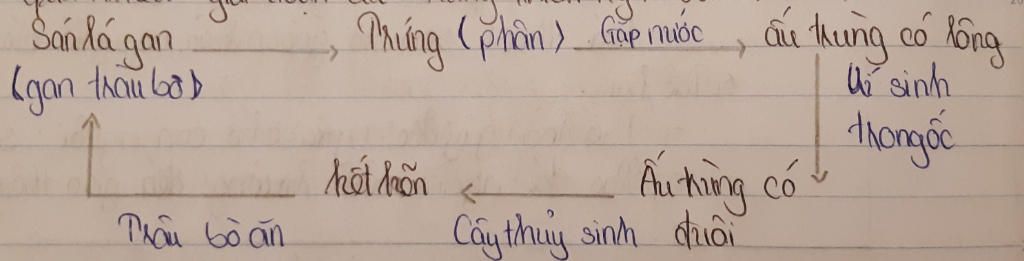 Sán lá gan → Trứng (phân) Gặp nước → ấu trùng có lông
(gan trâu bò)
kí sinh
trong ốc
kết kén ← Ấu trùng có
Trâu bò ăn Cây thủy sinh đuôi